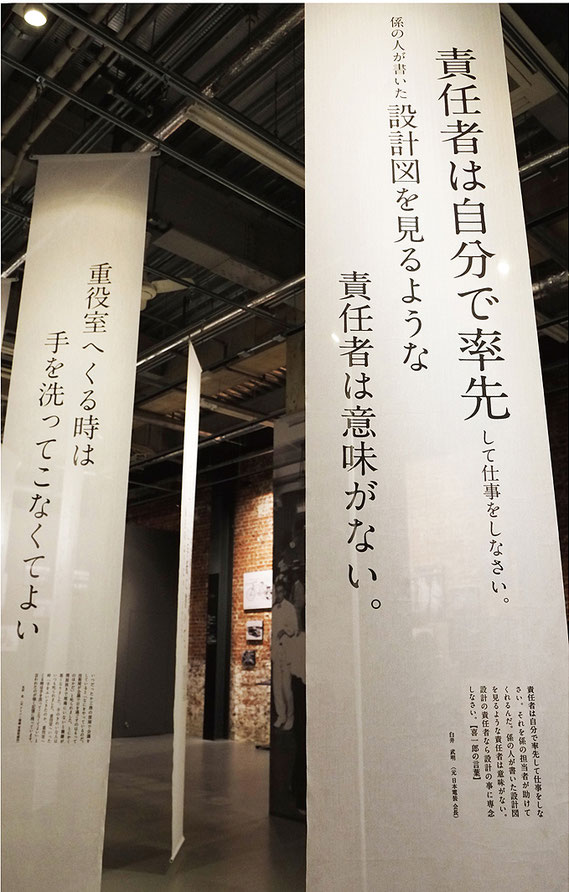 責任者は自分で率先して仕事をしなさい。
係の人が書いた設計図を見るような
責任者は意味がない。
責任者は自分で率先して仕事をしな
さい。それを係の担当者が助けて
くれるんだ。係の人が書いた設計図
を見るような責任者は意味がない。
設計の責任者なら設計の事に専念
しなさい。【喜一郎の言葉】
白井 武明 (元 日本電装 会長)
重役室へくる時は
手を洗ってこなくてよい